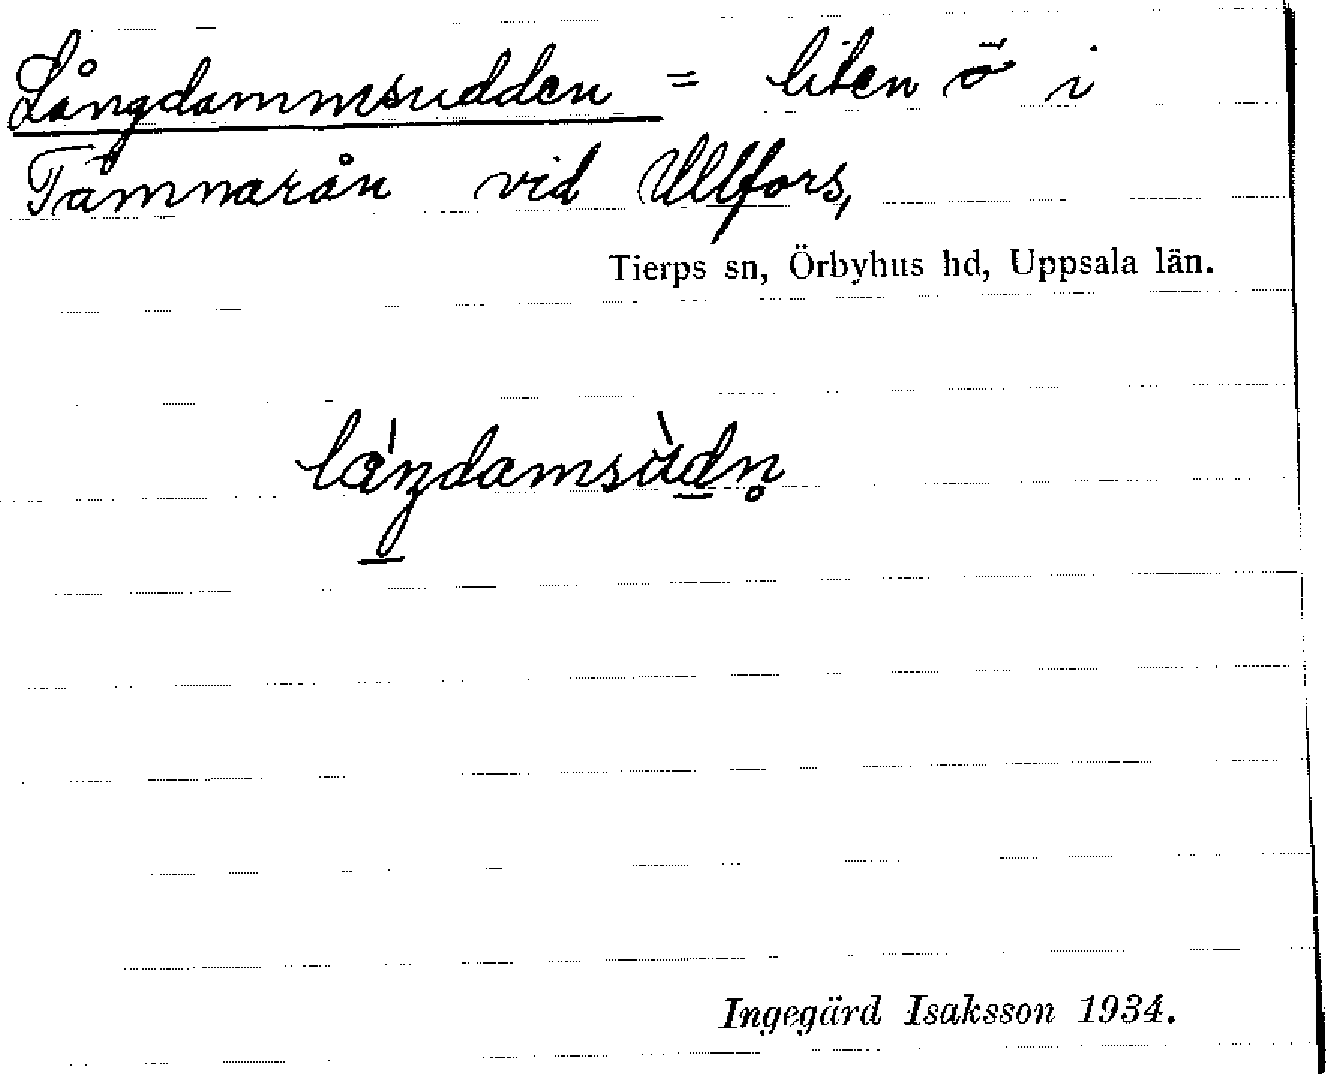 Långdammsudden = liten ö i
Tämnarån vid Ullfors,
Tierps sn, Örbyhus hd, Uppsala län.
Ingegärd Isaksson 1934.